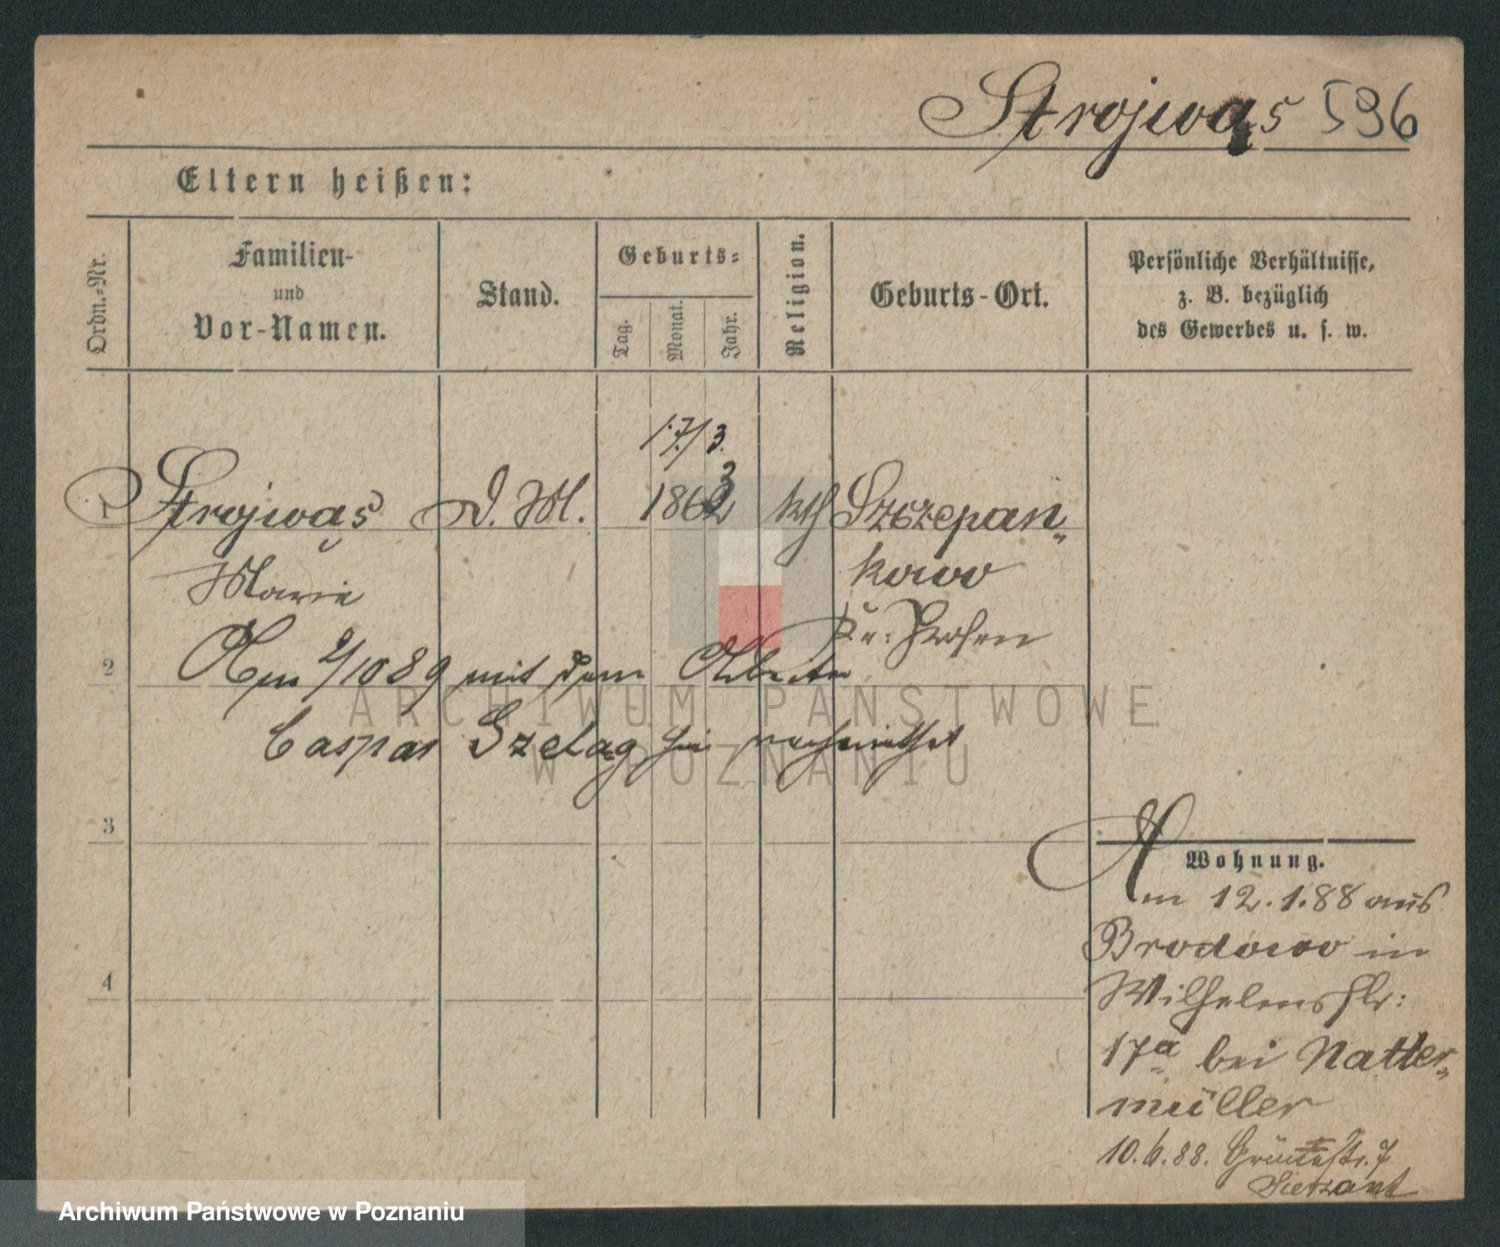 Strojwąs 596
Eltern heißen:
Ordn.-Nr.
Familien-
und
Vor-Namen.
Stand.
Geburts-
Tag.
Monat.
Jahr.
Religion.
Geburts-Ort.
Persönliche Verhältnisse,
z. B. bezüglich
des Gewerbes u. s. w.
17/3.
1 Strojwąs D. M. 1863 kth Szczepan-
Marie kowo
Kr. Posen
2 Am 2/10 89 mit dem Arbeiter
Caspar Szeląg hier verheirathet
ARCHIWUM PAŃSTWOWE
W POZNANIU
3
4
Wohnung.
Am 12.1.88 aus
Brodowo in
Wilhelmstr:
17a bei Natter-
müller
10.6.88. Grünestr. 7
Archiwum Państwowe w Poznaniu